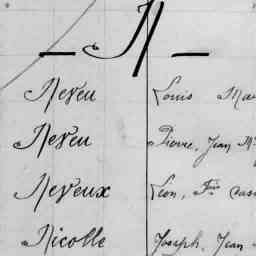 N
Neveu Louis
Neveu Pierre, Jean
Neveux Léon,
Nicolle Joseph, Jean